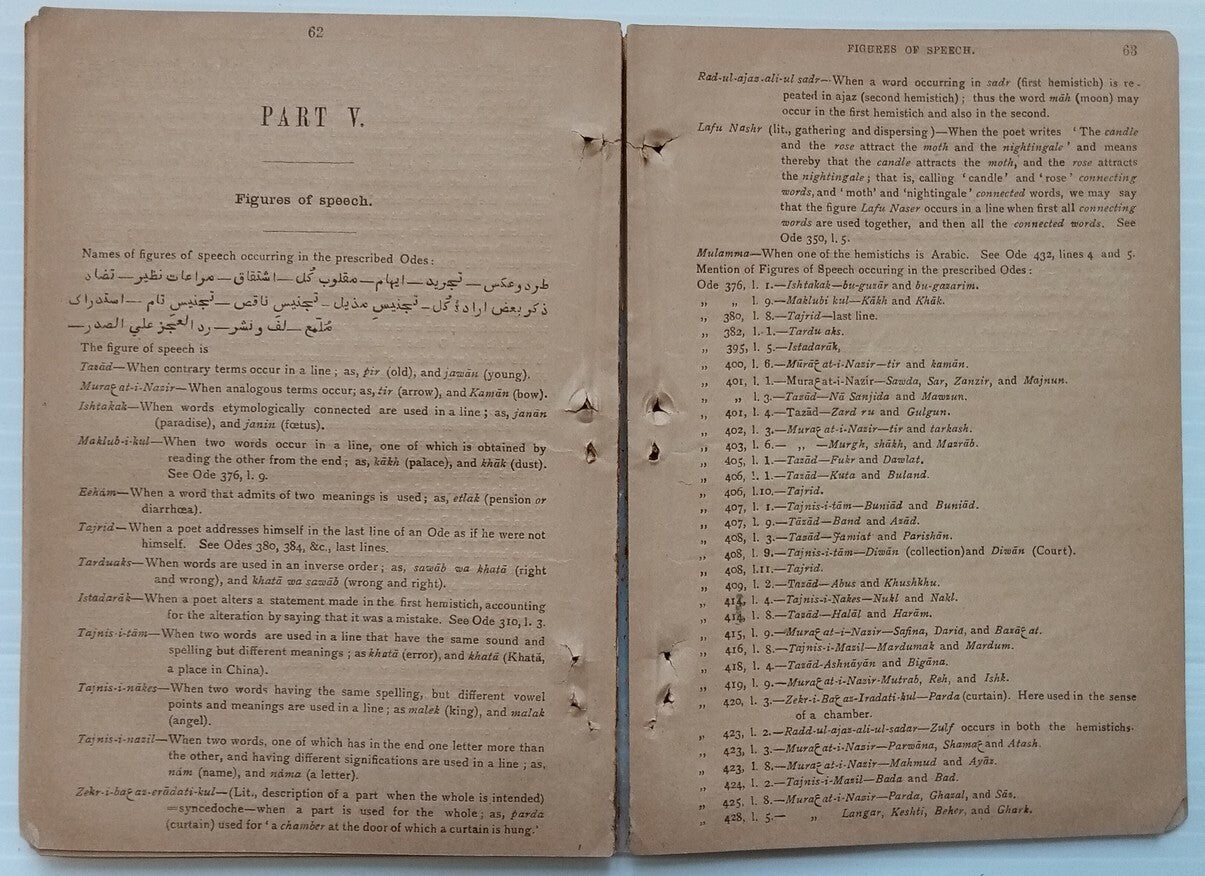 62
PART V.
Figures of speech.
Names of figures of speech occurring in the prescribed Odes:
طرد و عکس — تجرید — ایهام — مقلوب کل — اشتقاق — مراعات نظیر — تضاد
ذکر بعض ارادۀ کل — تجنیس مذیل — تجنیس ناقص — تجنیس تام — استدراک
ملمع — لف و نشر — رد العجز علي الصدر —
The figure of speech is
Tazād—When contrary terms occur in a line; as, pir (old), and jawān (young).
Muraʕat-i-Nazir—When analogous terms occur; as, tir (arrow), and Kamān (bow).
Ishtakak—When words etymologically connected are used in a line; as, janān
(paradise), and janin (fœtus).
Maklub-i-kul—When two words occur in a line, one of which is obtained by
reading the other from the end; as, kākh (palace), and khāk (dust).
See Ode 376, l. 9.
Eehām—When a word that admits of two meanings is used; as, etlāk (pension or
diarrhœa).
Tajrid—When a poet addresses himself in the last line of an Ode as if he were not
himself. See Odes 380, 384, &c., last lines.
Tarduaks—When words are used in an inverse order; as, sawāb wa khatā (right
and wrong), and khatā wa sawāb (wrong and right).
Istadarāk—When a poet alters a statement made in the first hemistich, accounting
for the alteration by saying that it was a mistake. See Ode 310, l. 3.
Tajnis-i-tām—When two words are used in a line that have the same sound and
spelling but different meanings; as khatā (error), and khatā (Khatá,
a place in China).
Tajnis-i-nākes—When two words having the same spelling, but different vowel
points and meanings are used in a line; as malek (king), and malak
(angel).
Tajnis-i-nazil—When two words, one of which has in the end one letter more than
the other, and having different significations are used in a line; as,
nām (name), and nāma (a letter).
Zekr-i-baʕaz-erādati-kul—(Lit., description of a part when the whole is intended)
=syncedoche—when a part is used for the whole; as, parda
(curtain) used for 'a chamber at the door of which a curtain is hung.'
FIGURES OF SPEECH. 63
Rad-ul-ajaz-ali-ul sadr—When a word occurring in sadr (first hemistich) is re-
peated in ajaz (second hemistich); thus the word māh (moon) may
occur in the first hemistich and also in the second.
Lafu Nashr (lit., gathering and dispersing)—When the poet writes 'The candle
and the rose attract the moth and the nightingale' and means
thereby that the candle attracts the moth, and the rose attracts
the nightingale; that is, calling 'candle' and 'rose' connecting
words, and 'moth' and 'nightingale' connected words, we may say
that the figure Lafu Naser occurs in a line when first all connecting
words are used together, and then all the connected words. See
Ode 350, l. 5.
Mulamma—When one of the hemistichs is Arabic. See Ode 432, lines 4 and 5.
Mention of Figures of Speech occuring in the prescribed Odes:
Ode 376, l. 1.—Ishtakak—bu-guzār and bu-gazarim.
„ „ l. 9.—Maklubi kul—Kākh and Khāk.
„ 380, l. 8.—Tajrid—last line.
„ 382, l. 1.—Tardu aks.
„ 395, l. 5.—Istadarāk,
„ 400, l. 6.—Mūrāʕat-i-Nazir—tir and kamān.
„ 401, l. 1.—Muraʕat-i-Nazir—Sawda, Sar, Zanzir, and Majnun.
„ „ l. 3.—Tazād—Nā Sanjida and Mawzun.
„ 401, l. 4.—Tazād—Zard ru and Gulgun.
„ 402, l. 3.—Muraʕat-i-Nazir—tir and tarkash.
„ 403, l. 6.— „ —Murgh, shākh, and Mazrāb.
„ 405, l. 1.—Tazād—Fukr and Dawlat.
„ 406, l. 1.—Tazād—Kuta and Buland.
„ 406, l.10.—Tajrid.
„ 407, l. 1.—Tajnis-i-tām—Buniād and Buniād.
„ 407, l. 9.—Tāzād—Band and Azād.
„ 408, l. 3.—Tazād—Jamiat and Parishān.
„ 408, l. 9.—Tajnis-i-tām—Diwān (collection)and Diwān (Court).
„ 408, l.11.—Tajrid.
„ 409, l. 2.—Tazād—Abus and Khushkhu.
„ 414, l. 4.—Tajnis-i-Nakes—Nukl and Nakl.
„ 414, l. 8.—Tazād—Halāl and Harām.
„ 415, l. 9.—Muraʕat-i-Nazir—Safina, Dariā, and Bazāʕat.
„ 416, l. 8.—Tajnis-i-Mazil—Mardumak and Mardum.
„ 418, l. 4.—Tazād-Ashnāyān and Bigāna.
„ 419, l. 9.—Muraʕat-i-Nazir-Mutrab, Reh, and Ishk.
„ 420, l. 3.—Zekr-i-Baʕaz-Iradati-kul—Parda (curtain). Here used in the sense
of a chamber.
„ 423, l. 2.—Radd-ul-ajaz-ali-ul-sadar—Zulf occurs in both the hemistichs.
„ 423, l. 3.—Muraʕat-i-Nazir—Parwāna, Shamaʕ and Atash.
„ 423, l. 8.—Muraʕat-i-Nazir—Mahmud and Ayāz.
„ 424, l. 2.—Tajnis-i-Mazil—Bada and Bad.
„ 425, l. 8.—Muraʕat-i-Nazir—Parda, Ghazal, and Sāz.
„ 428, l. 5.— „ Langar, Keshti, Beher, and Ghark.